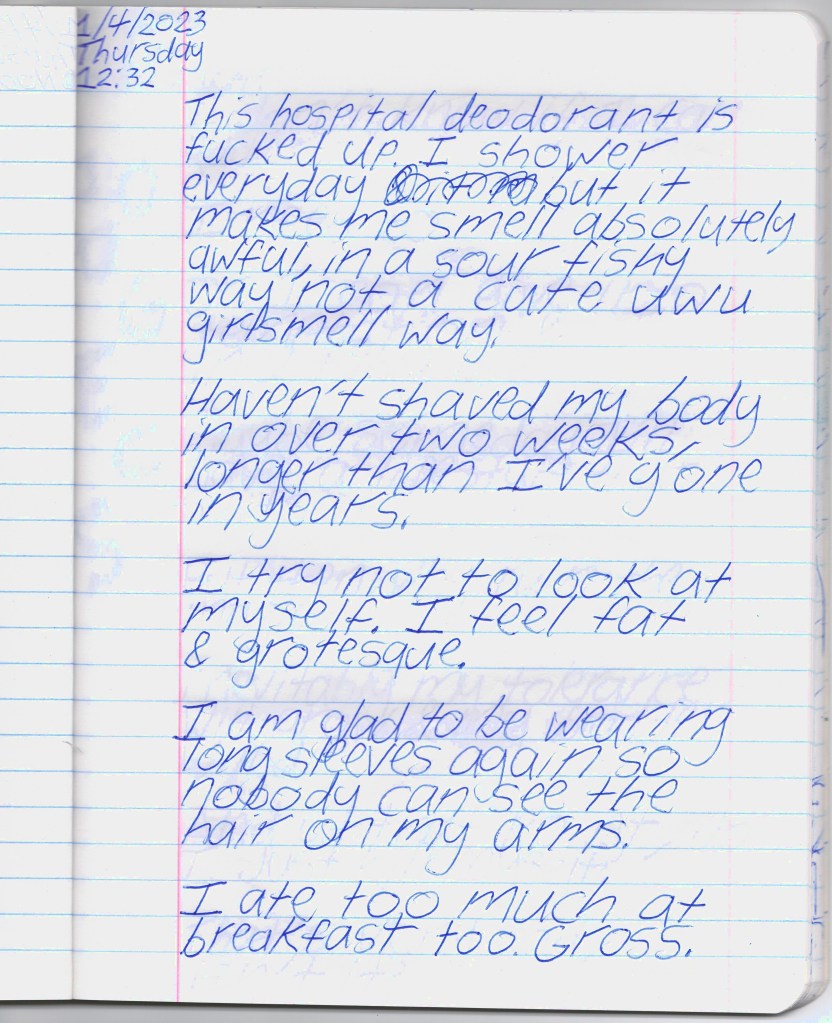 1/4/2023
Thursday
12:32
This hospital deodorant is
fucked up. I shower
everyday but it
makes me smell absolutely
awful, in a sour fishy
way not a cute uwu
girlsmell way.
Haven't shaved my body
in over two weeks,
longer than I've gone
in years.
I try not to look at
myself. I feel fat
& grotesque.
I am glad to be wearing
long sleeves again so
nobody can see the
hair on my arms.
I ate too much at
breakfast too. Gross.